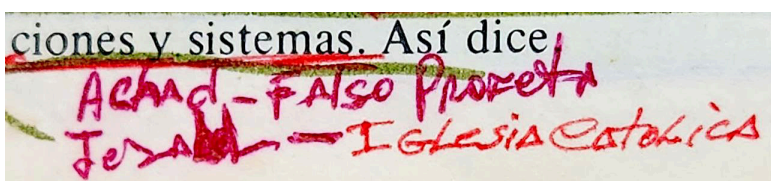 ciones y sistemas. Así dice
Achad - Falso Profeta
Jesabel - Iglesia Catolica